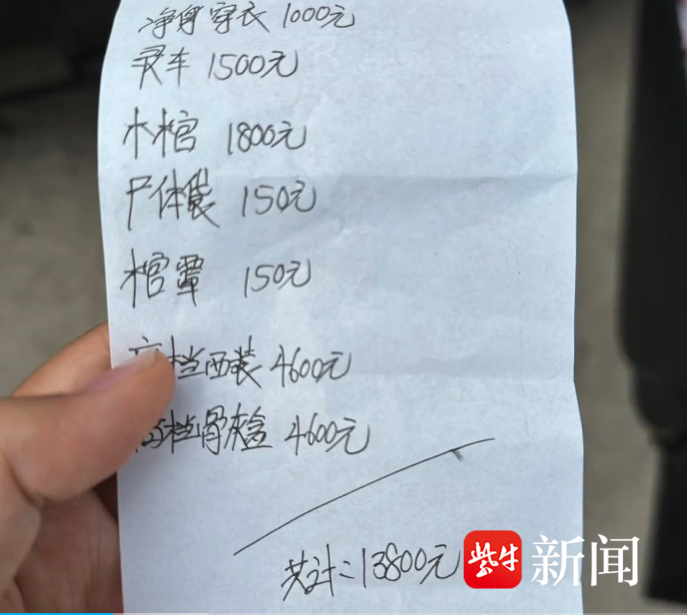 净身穿衣 1000元
灵车 1500元
木棺 1800元
尸体袋 150元
棺罩 150元
高档西装 4600元
高档骨灰盒 4600元
共计:13800元
紫牛 新闻